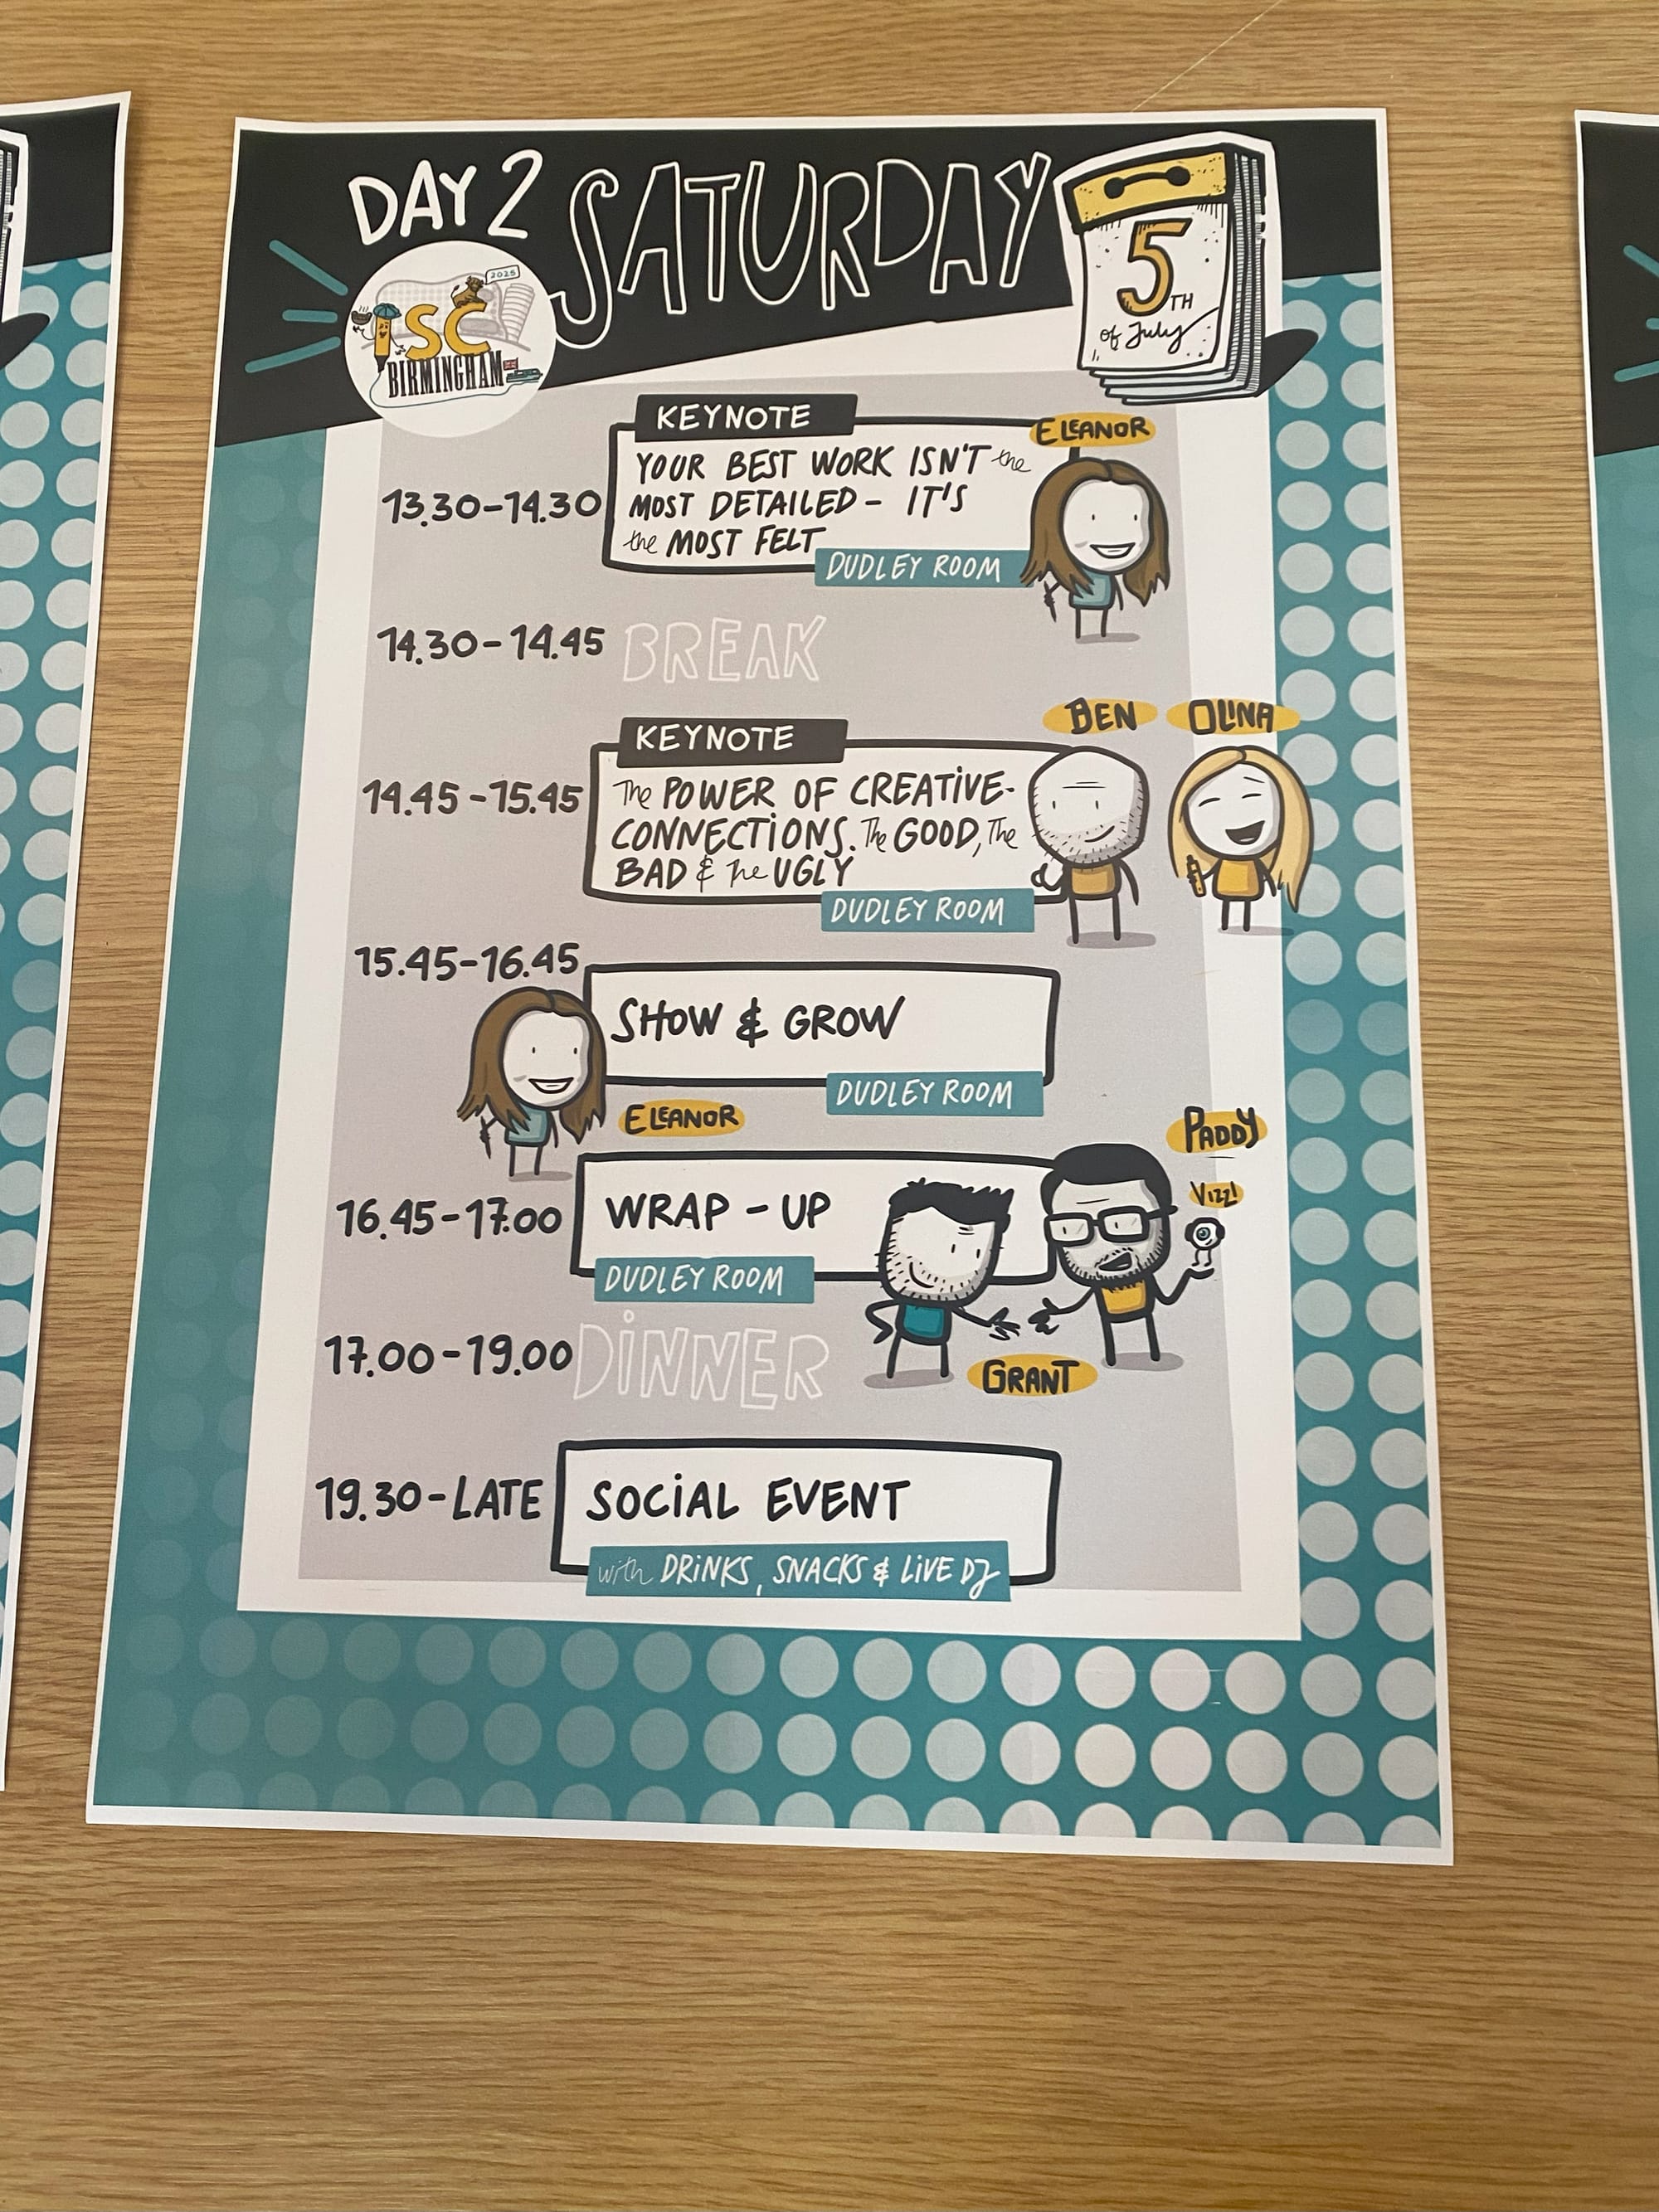 DAY 2 SATURDAY
5TH
of July
2025
ISC
BIRMINGHAM
KEYNOTE
ELEANOR
13.30-14.30
YOUR BEST WORK ISN'T the
MOST DETAILED - IT'S
the MOST FELT
DUDLEY ROOM
14.30-14.45 BREAK
BEN OLINA
KEYNOTE
14.45-15.45
The POWER OF CREATIVE-
CONNECTIONS. The GOOD, The
BAD & The UGLY
DUDLEY ROOM
15.45-16.45
SHOW & GROW
DUDLEY ROOM
ELEANOR
PADDY
VIZZ!
16.45-17.00
WRAP-UP
DUDLEY ROOM
17.00-19.00 DINNER
GRANT
19.30-LATE
SOCIAL EVENT
with DRINKS, SNACKS & LIVE DJ